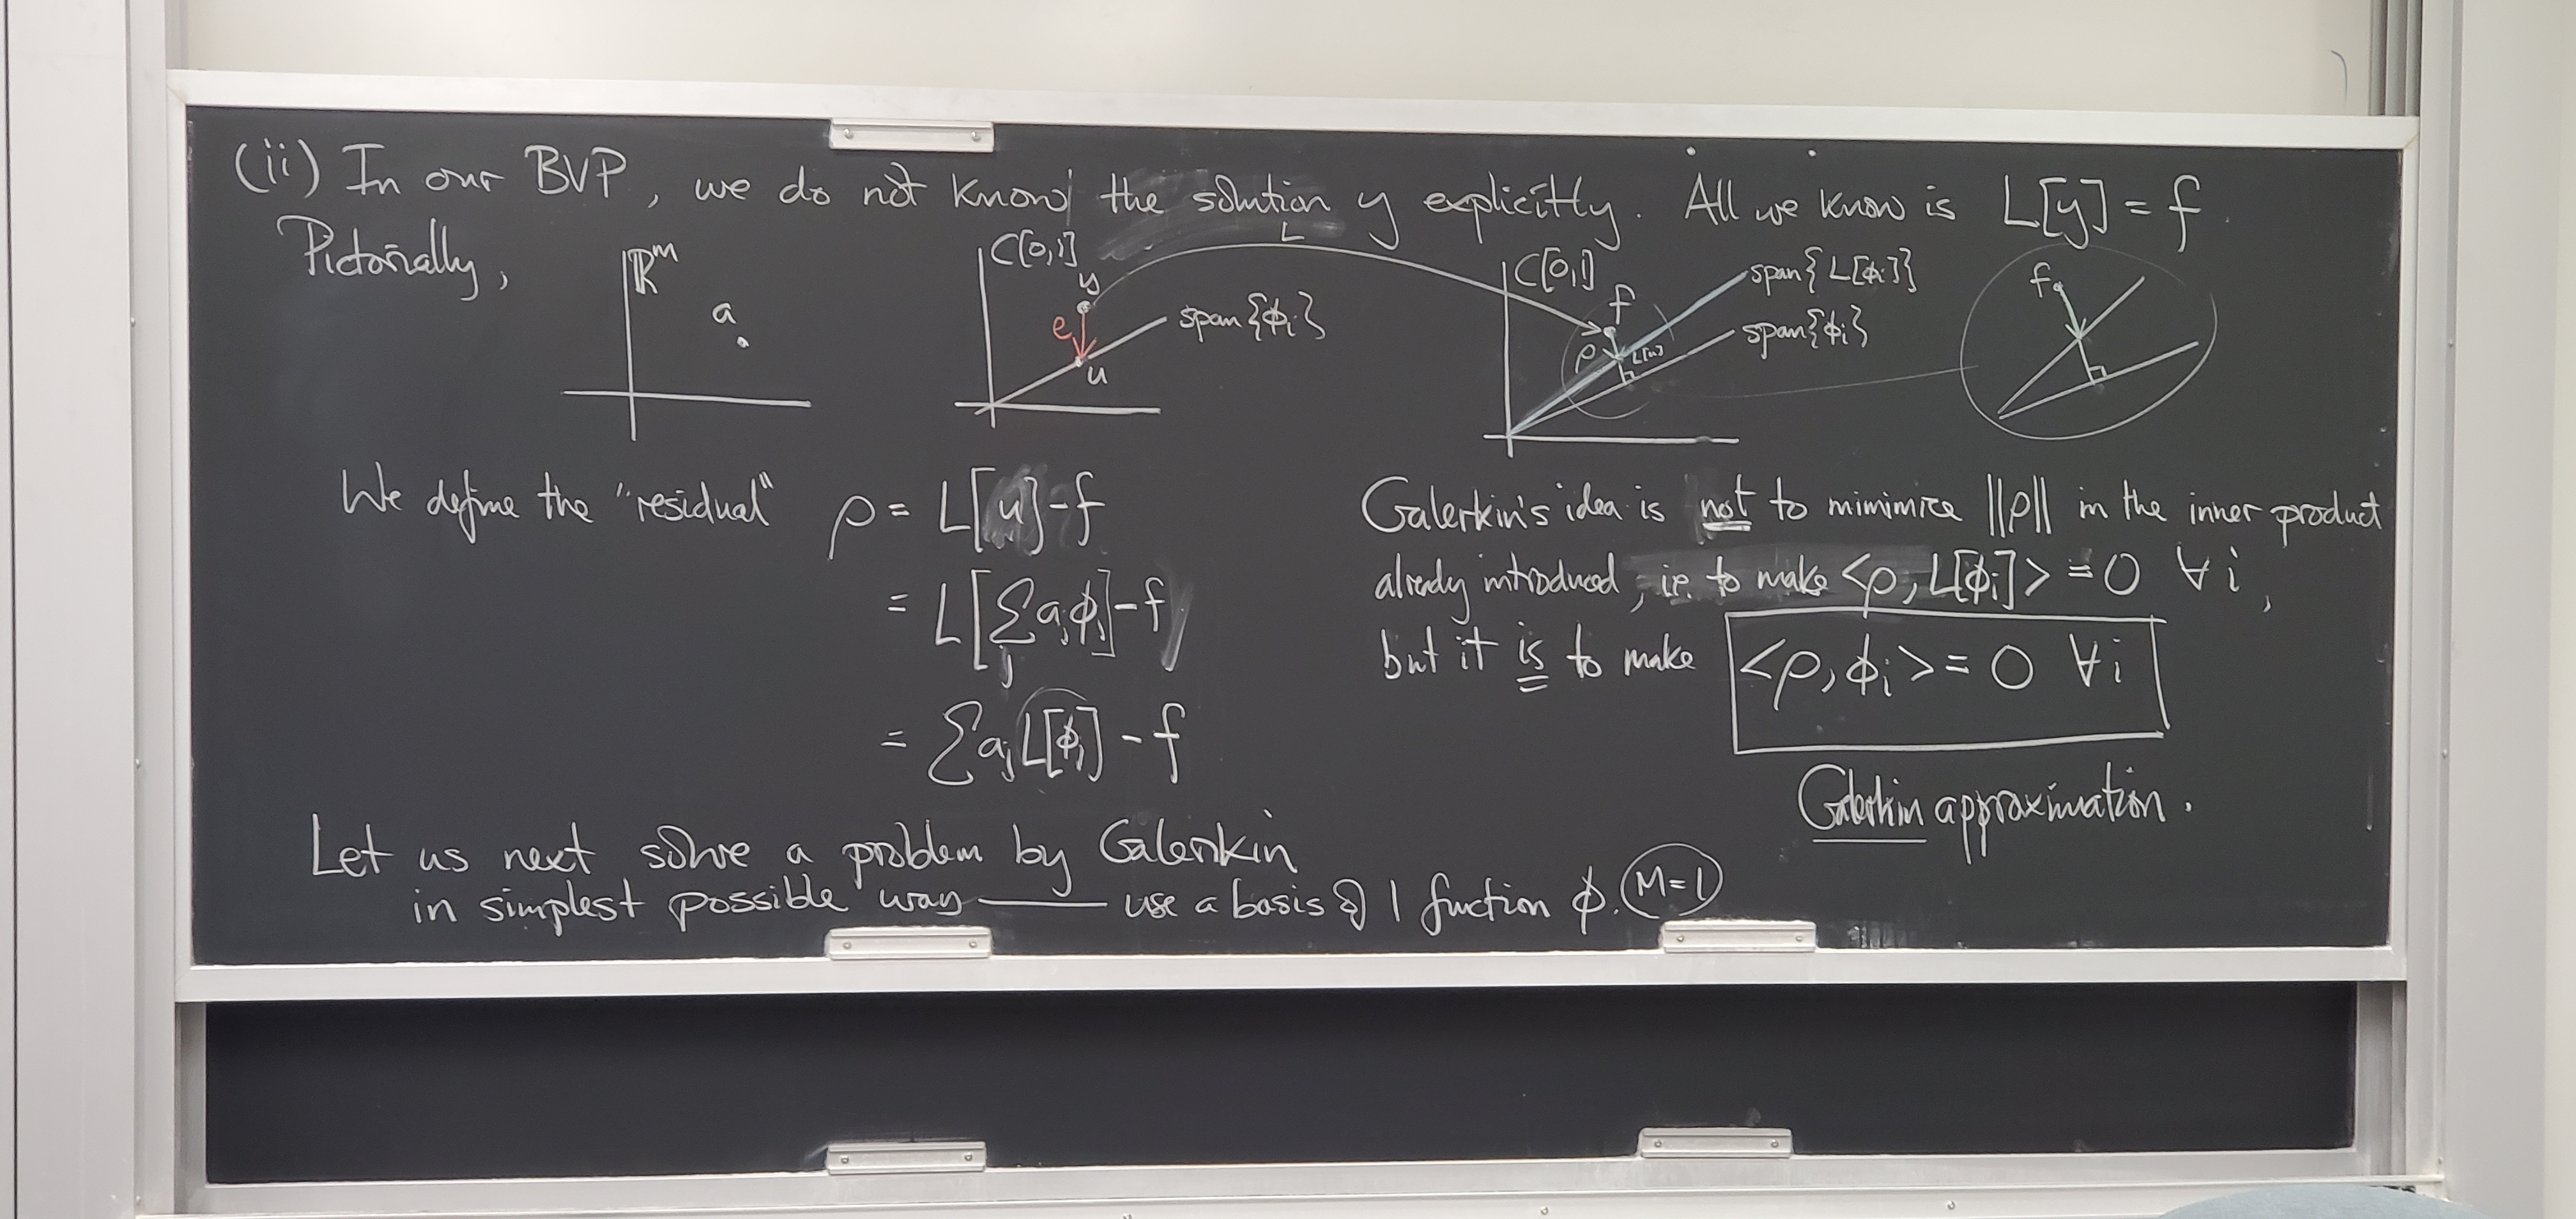 (ii) In our BVP, we do not know the solution y explicitly. All we know is L[y] = f.
Pictorially,
ℝᵐ
a
C[0,1]
y
e
u
span{ϕᵢ}
L
C[0,1]
f
ρ
L[u]
span{L[ϕᵢ]}
span{ϕᵢ}
f
We define the "residual" ρ = L[u] - f
= L[∑ⱼ aⱼϕⱼ] - f
= ∑ aⱼ L[ϕⱼ] - f
Galerkin's idea is not to mimimize ||ρ|| in the inner product
already introduced, i.e. to make <ρ, L[ϕᵢ]> = 0 ∀ i,
but it is to make <ρ, ϕᵢ> = 0 ∀ i
Galerkin approximation.
Let us next solve a problem by Galerkin
in simplest possible way — use a basis of 1 function ϕ. M=1